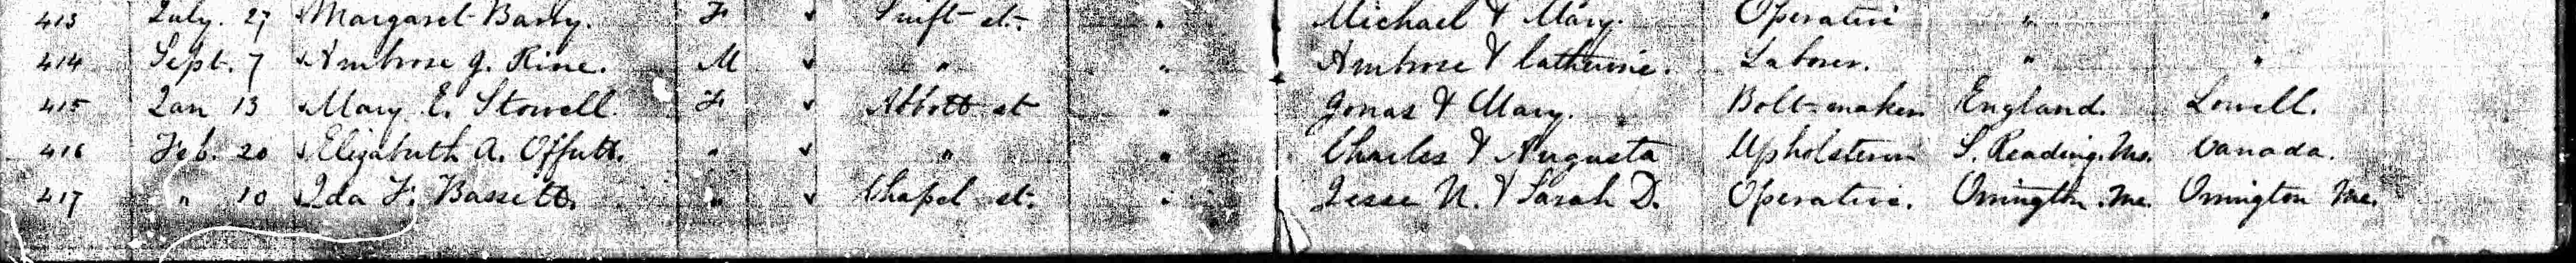 413 July. 27 Margaret Barry. F " Swift st. " Michael & Mary. Operative " "
414 Sept. 7 Ambrose J. Rine. M " " " Ambrose & Catherine. Laborer. " "
415 Jan 13 Mary E. Stowell. F " Abbott st " Jonas & Mary. Bolt-maker England. Lowell.
416 Feb. 20 Elizabeth A. Offutt. " " " " Charles & Augusta Upholsterer S. Reading. Ms. Canada.
417 " 10 Ida F. Bassett. " " Chapel st. " Jesse N. & Sarah D. Operative. Orrington. Me. Orrington Me.